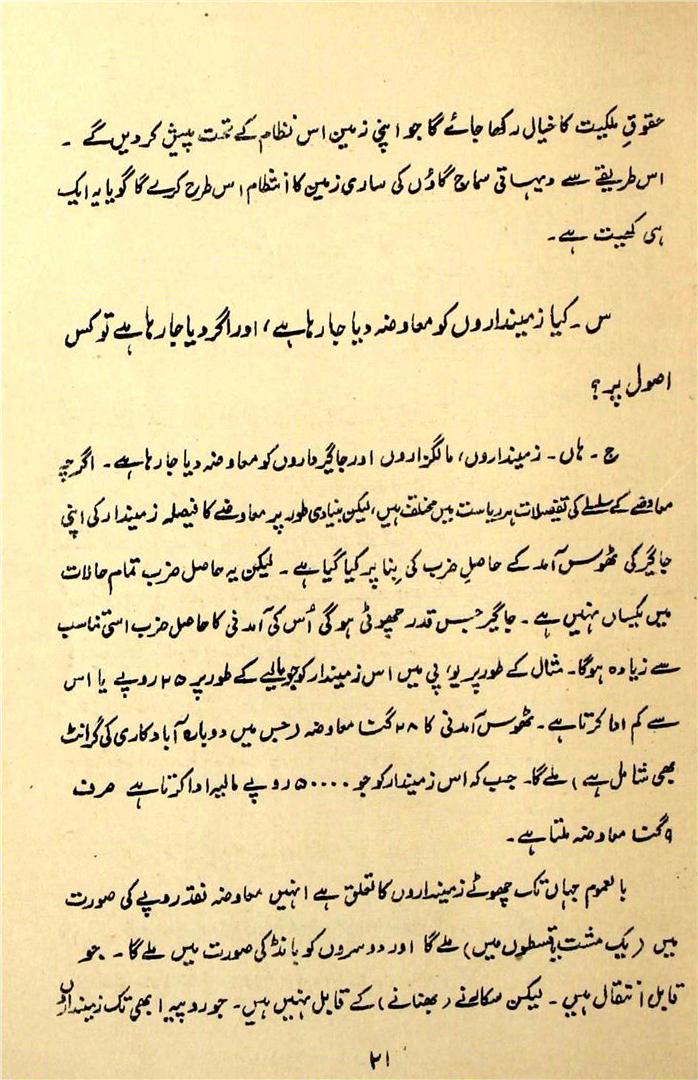 حقوقِ ملکیت کا خیال رکھا جائے گا جو اپنی زمین اس نظام کے تحت پیش کردیں گے ۔
اس طریقے سے دیہاتی سماج گاؤں کی ساری زمین کا انتظام اس طرح کرے گا گویا یہ ایک
ہی کھیت ہے۔
س ۔ کیا زمینداروں کو معاوضہ دیا جا رہا ہے ، اور اگر دیا جا رہا ہے تو کس
اصول پر ؟
ج ۔ ہاں ۔ زمینداروں، مالگزاروں اور جاگیرداروں کو معاوضہ دیا جا رہا ہے ۔ اگرچہ
معاوضے کے سلسلے کی تفصیلات ہر ریاست میں مختلف ہیں، لیکن بنیادی طور پر معاوضے کا فیصلہ زمیندار کی اپنی
جاگیر کی ٹھوس آمد کے حاصلِ ضرب کی بِنا پر کیا گیا ہے ۔ لیکن یہ حاصل ضرب تمام حالات
میں یکساں نہیں ہے ۔ جاگیر جس قدر چھوٹی ہوگی اُس کی آمدنی کا حاصل ضرب اسی تناسب
سے زیادہ ہوگا۔ مثال کے طور پر یو، پی میں اس زمیندار کو جو مالیے کے طور پر ۲۵ روپے یا اس
سے کم ادا کرتا ہے ۔ ٹھوس آمدنی کا ۲۸ گنا معاوضہ (جس میں دوبارہ آبادکاری کی گرانٹ
بھی شامل ہے) ملے گا۔ جب کہ اس زمیندار کو جو ۵۰۰۰۰ روپے مالیہ ادا کرتا ہے صرف
۹ گنا معاوضہ ملتا ہے ۔
بالعموم جہاں تک چھوٹے زمینداروں کا تعلق ہے انہیں معاوضہ نقد روپے کی صورت
میں (یک مشت یا قسطوں میں) ملے گا اور دوسروں کو بانڈ کی صورت میں ملے گا ۔ جو
قابل انتقال ہیں ۔ لیکن سکالنے (بھنانے) کے قابل نہیں ہیں۔ جو روپیہ ابھی تک زمینداروں
۲۱